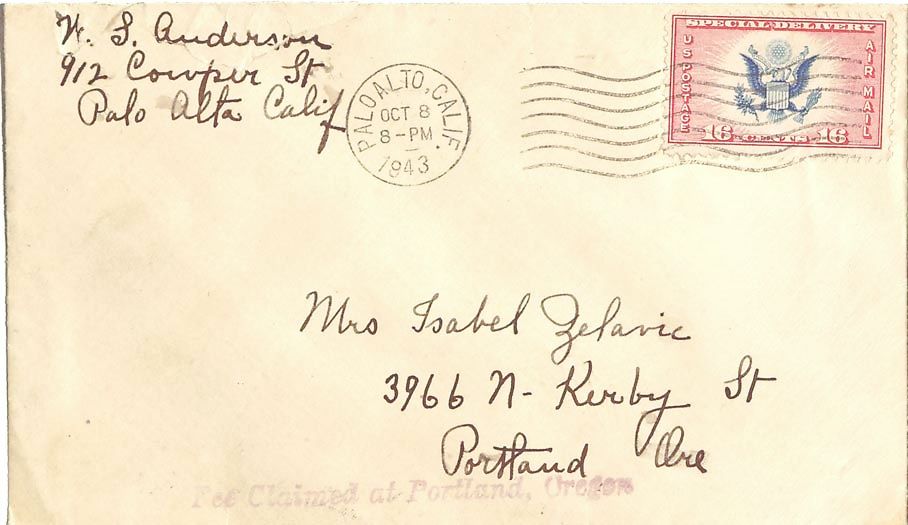 W. S. Anderson
912 Cowper St
Palo Alta Calif
PALO ALTO, CALIF.
OCT 8
8-PM
1943
SPECIAL DELIVERY
US POSTAGE
AIR MAIL
16 CENTS 16
Mrs Isabel Zelavic
3966 N- Kerby St
Portland Ore
Fee Claimed at Portland, Oregon